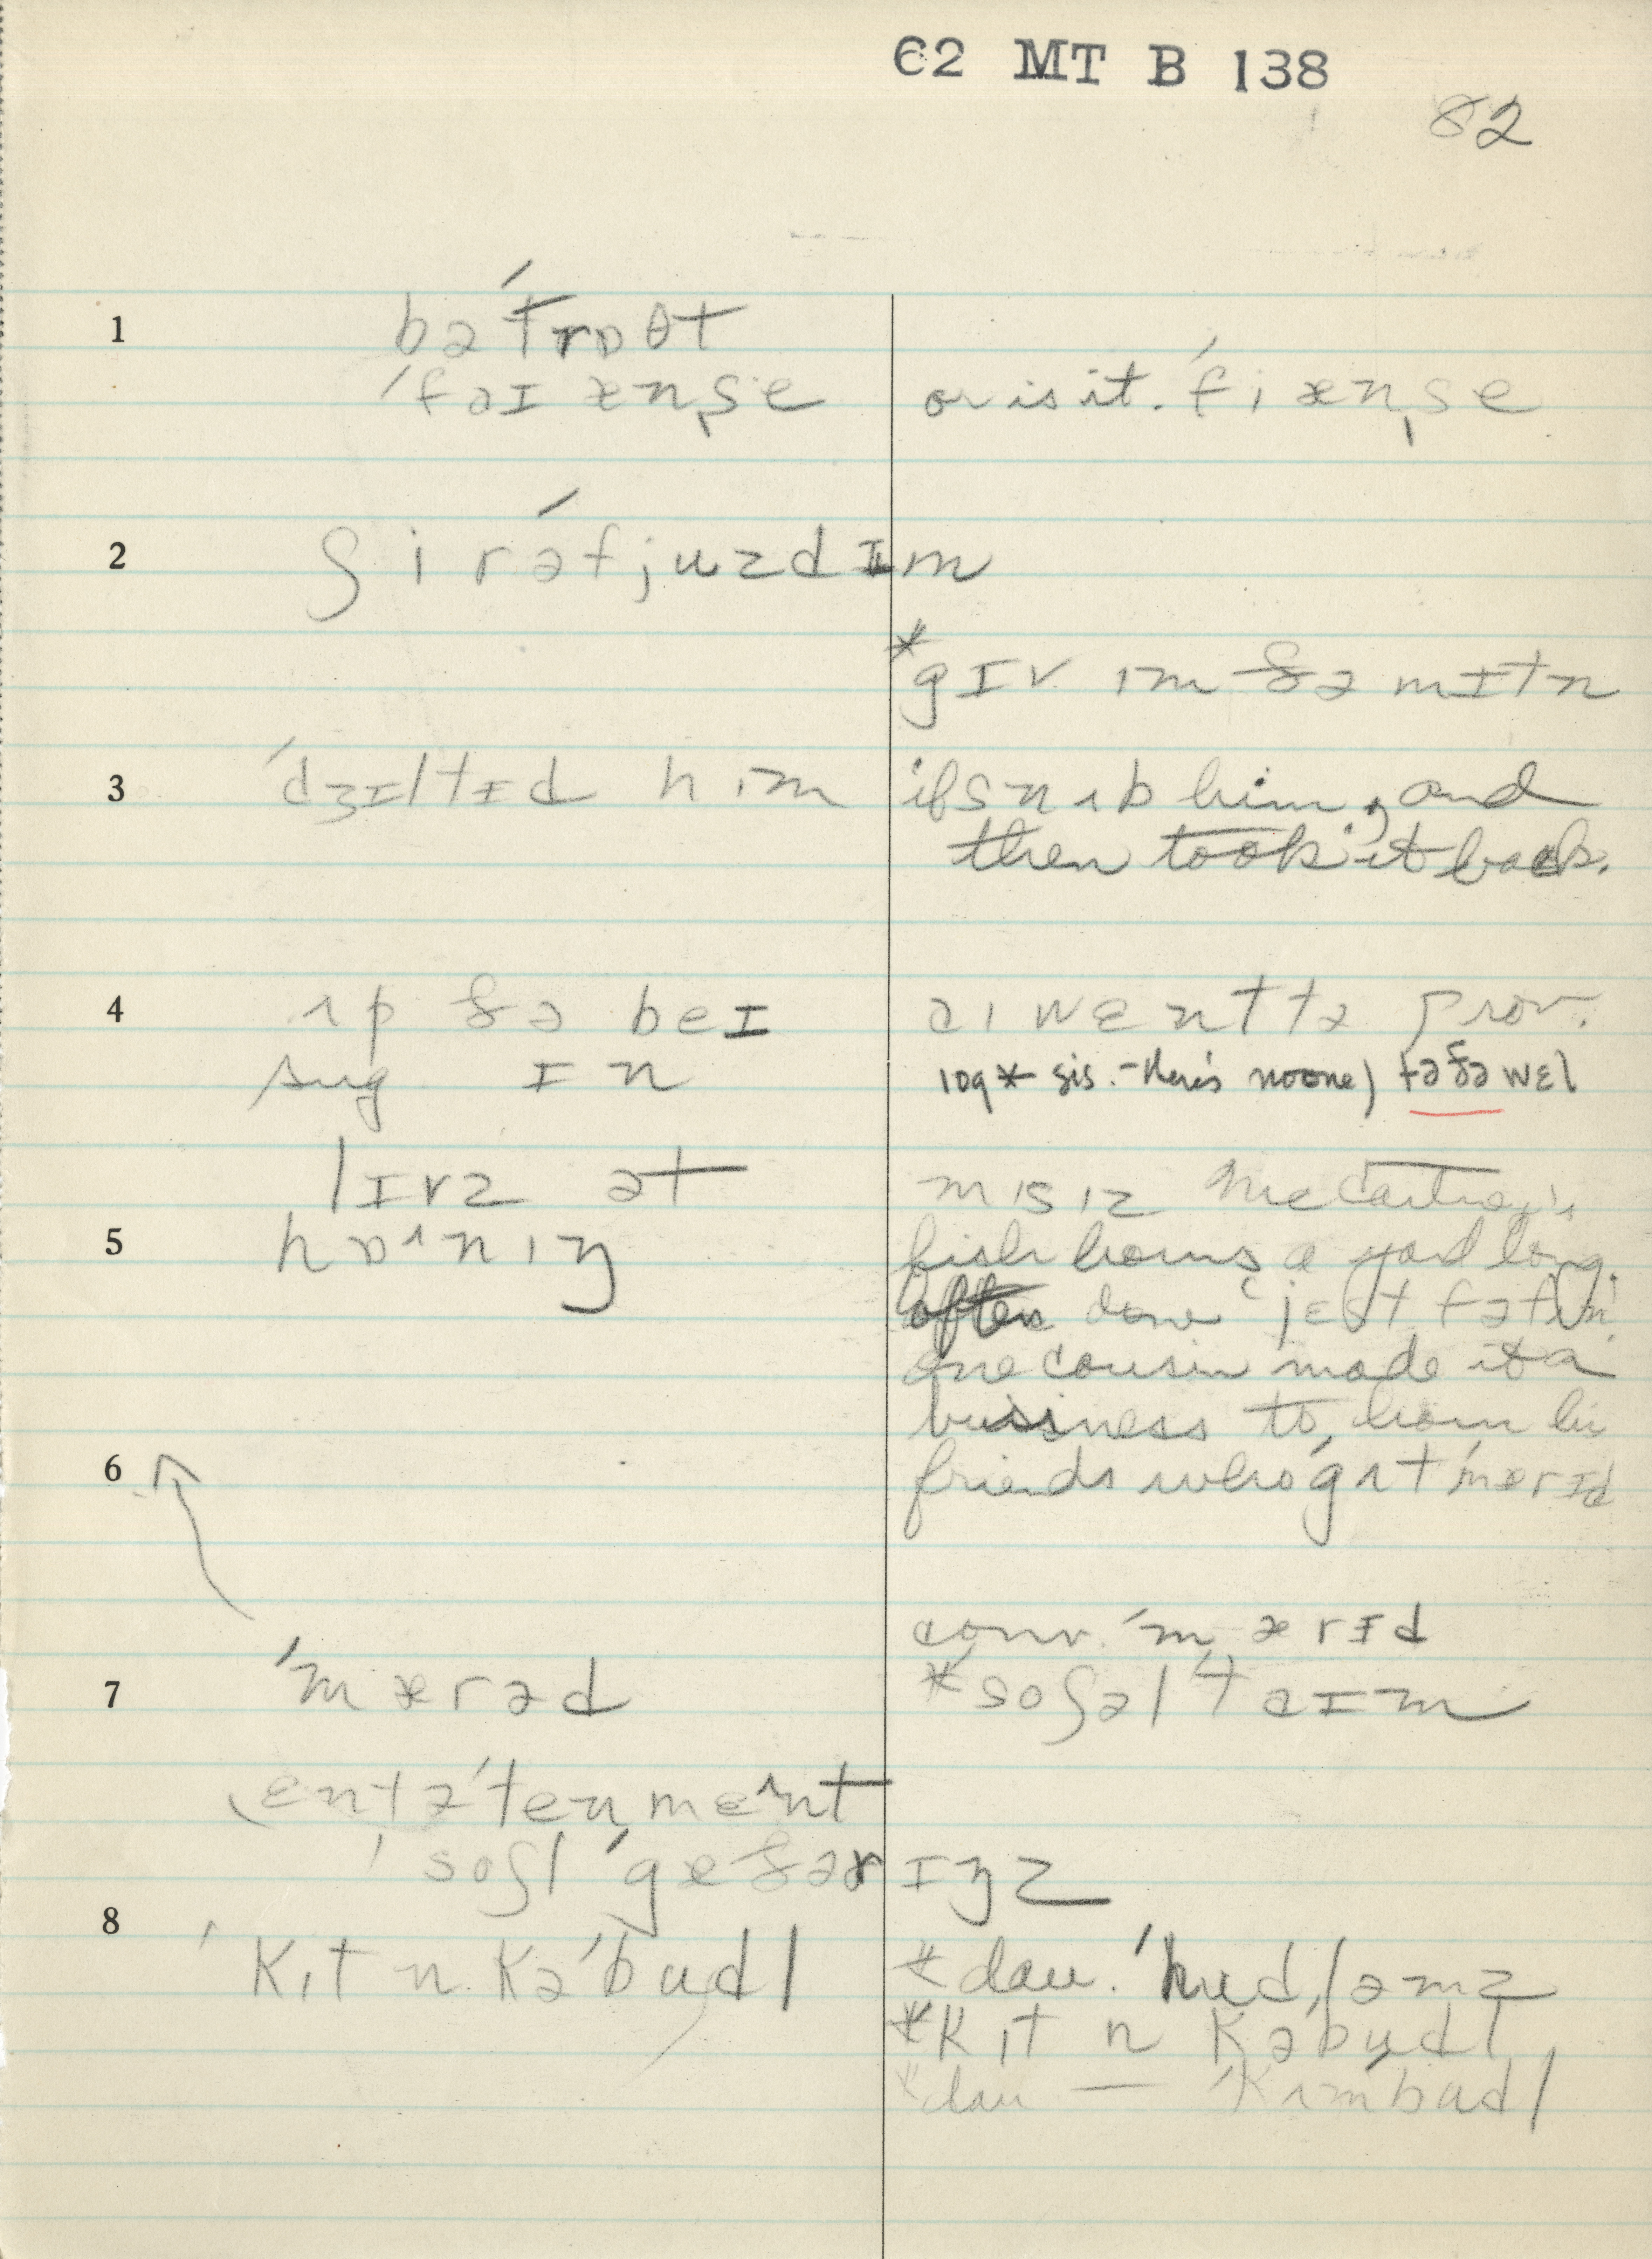 62 MT B 138
82
1
bəˈtrɒθt
ˈfɑɪænˌse or is it. ˈfiænˌse
2
ʃi rəˈfjuzd ɪm
*gɪv ɪm ðə mɪtn
3
ˈdʒɪltɪd him if snʌb him, and
then took it back.
4
ʌp ðə beɪ aɪ wɛnt tə prov.
sug ɪn 109* sis. - there's no one) tə ðə wɛl
lɪvz ət mɪsɪz McCartney's
5
hɒˑnɪŋ fish horns a yard long.
often done jɛst fə fʌn.
one cousin made it a
business to horn his
6
friends who gʌt ˈmærɪd
conv. ˈmærɪd
7
ˈmærəd *soʃəl ˈtaɪm
(ɛntəˈtenmɛnt
soʃl ˈgæðərɪŋz
8
ˈkɪt n kəˈbudl *dau. ˈhudləmz
*kɪt n kəˈbudl
*dau — ˈkʌmbudl